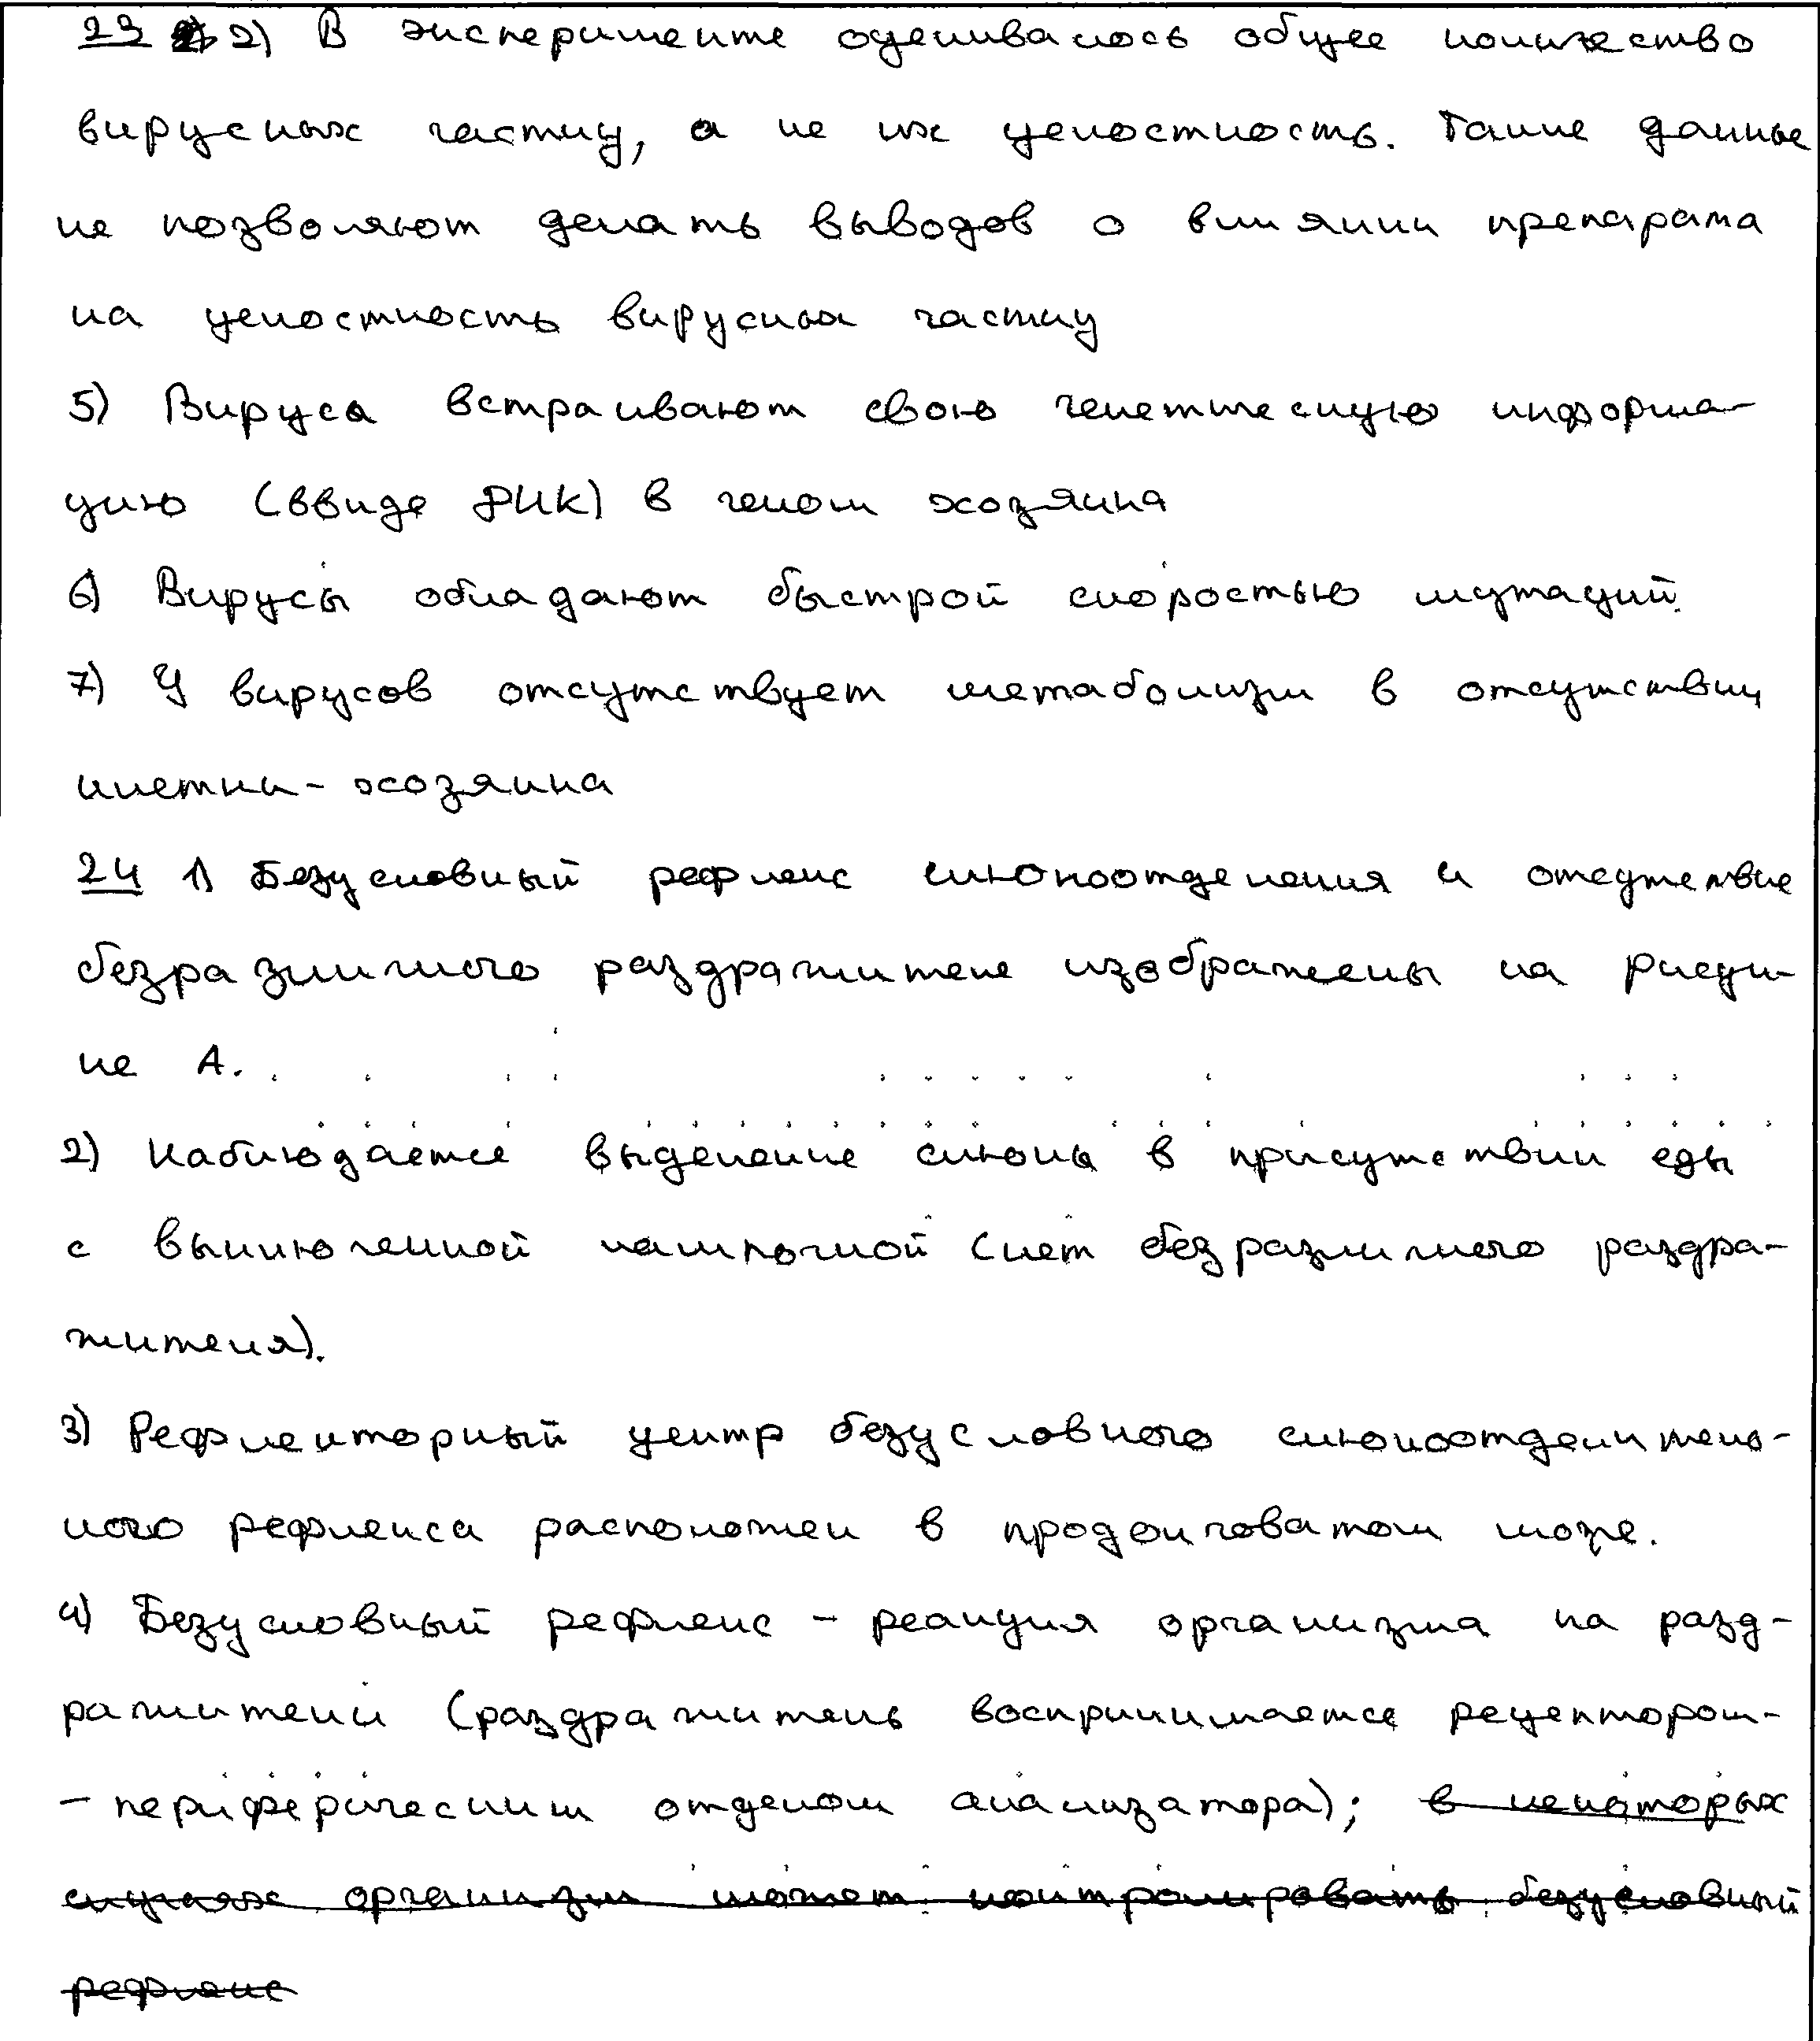 23 2) В эксперименте оценивалось общее количество
вирусных частиц, а не их целостность. Такие данные
не позволяют делать выводов о влиянии препарата
на целостность вирусных частиц
5) Вируса встраивают свою генетическую информа-
цию (ввиде ДНК) в геном хозяина
6) Вирусы обладают быстрой скоростью мутаций.
7) У вирусов отсутствует метаболизм в отсутствии
клетки-хозяина
24 1) Безусловный рефлекс слюноотделения и отсутствие
безразличного раздражителе изображены на рисун-
ке А.
2) Наблюдается выделение слюны в присутствии еды
с выключенной лампочкой (нет безразличного раздра-
жителя).
3) Рефлекторный центр безусловного слюноотделитель-
ного рефлекса расположен в продолговатом мозге.
4) Безусловный рефлекс - реакция организма на разд-
ражители (раздражитель воспринимается рецептором-
- периферическим отделом анализатора); в некоторых
случаях организм может контролировать безусловный
рефлекс